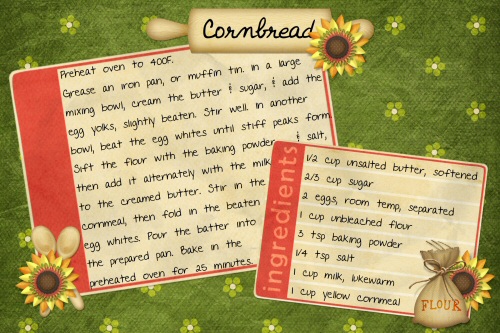 Cornbread
Preheat oven to 400F.
Grease an iron pan, or muffin tin. in a large
mixing bowl, cream the butter & sugar, & add the
egg yolks, slightly beaten. Stir well. In another
bowl, beat the egg whites until stiff peaks form.
Sift the flour with the baking powder & salt,
then add it alternately with the milk
to the creamed butter. Stir in the
cornmeal, then fold in the beaten
egg whites. Pour the batter into
the prepared pan. Bake in the
preheated oven for 25 minutes.
ingredients
1/2 cup unsalted butter, softened
2/3 cup sugar
2 eggs, room temp, separated
1 cup unbleached flour
3 tsp baking powder
1/4 tsp salt
1 cup milk, lukewarm
1 cup yellow cornmeal
FLOUR